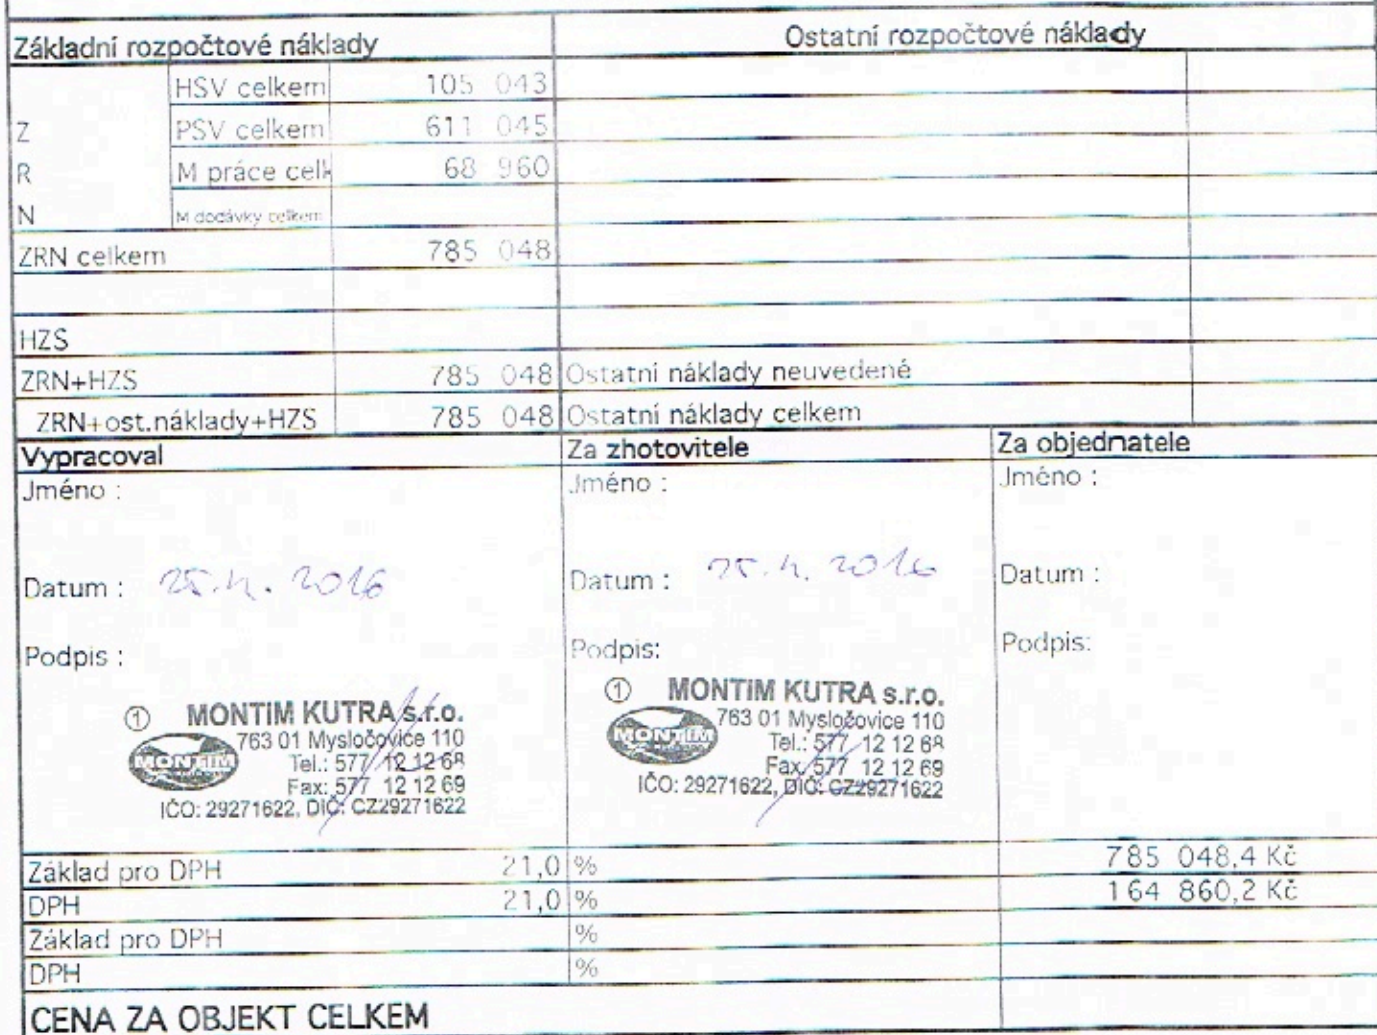 Základní rozpočtové náklady Ostatní rozpočtové náklady
HSV celkem 105 043
Z PSV celkem 611 045
R M práce celk 68 960
N M dodávky celkem
ZRN celkem 785 048
HZS
ZRN+HZS 785 048 Ostatní náklady neuvedené
ZRN+ost.náklady+HZS 785 048 Ostatní náklady celkem
Vypracoval Za zhotovitele Za objednatele
Jméno : Jméno : Jméno :
Datum : 25.4. 2016 Datum : 25.4. 2016 Datum :
Podpis : Podpis: Podpis:
① MONTIM KUTRA s.r.o.
763 01 Mysločovice 110
MONTIM
Tel.: 577 12 12 68
Fax: 577 12 12 69
IČO: 29271622, DIČ: CZ29271622
① MONTIM KUTRA s.r.o.
763 01 Mysločovice 110
MONTIM
Tel.: 577 12 12 68
Fax: 577 12 12 69
IČO: 29271622, DIČ: CZ29271622
Základ pro DPH 21,0 % 785 048,4 Kč
DPH 21,0 % 164 860,2 Kč
Základ pro DPH %
DPH %
CENA ZA OBJEKT CELKEM